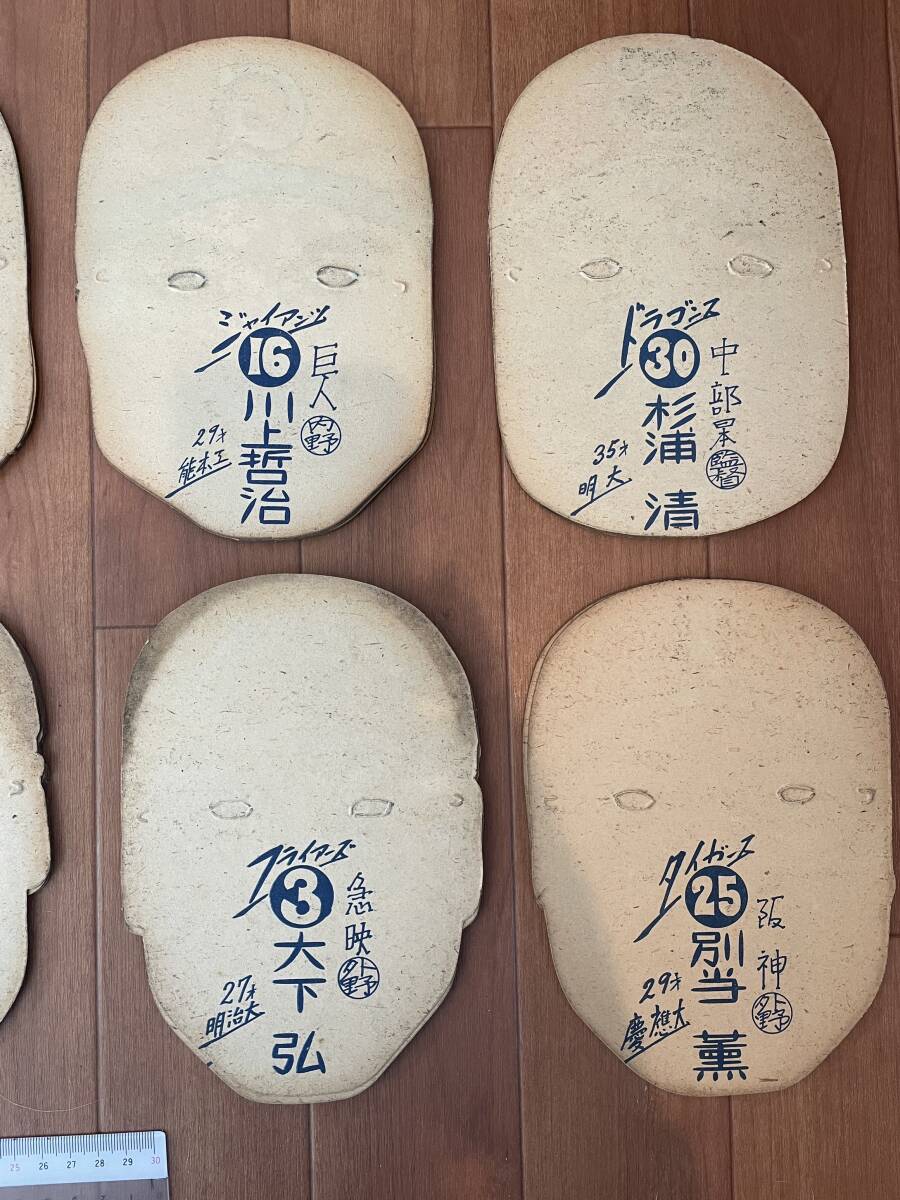 ジャイアンツ
16
巨人
内野
川上哲治
29才
熊本工
ドラゴンス
30
中部日本
監督
杉浦 清
35才
明大
フライアーズ
3
急映
外野
大下 弘
27才
明治大
タイガース
25
阪神
外野
別当 薫
29才
慶應大
25 26 27 28 29 30